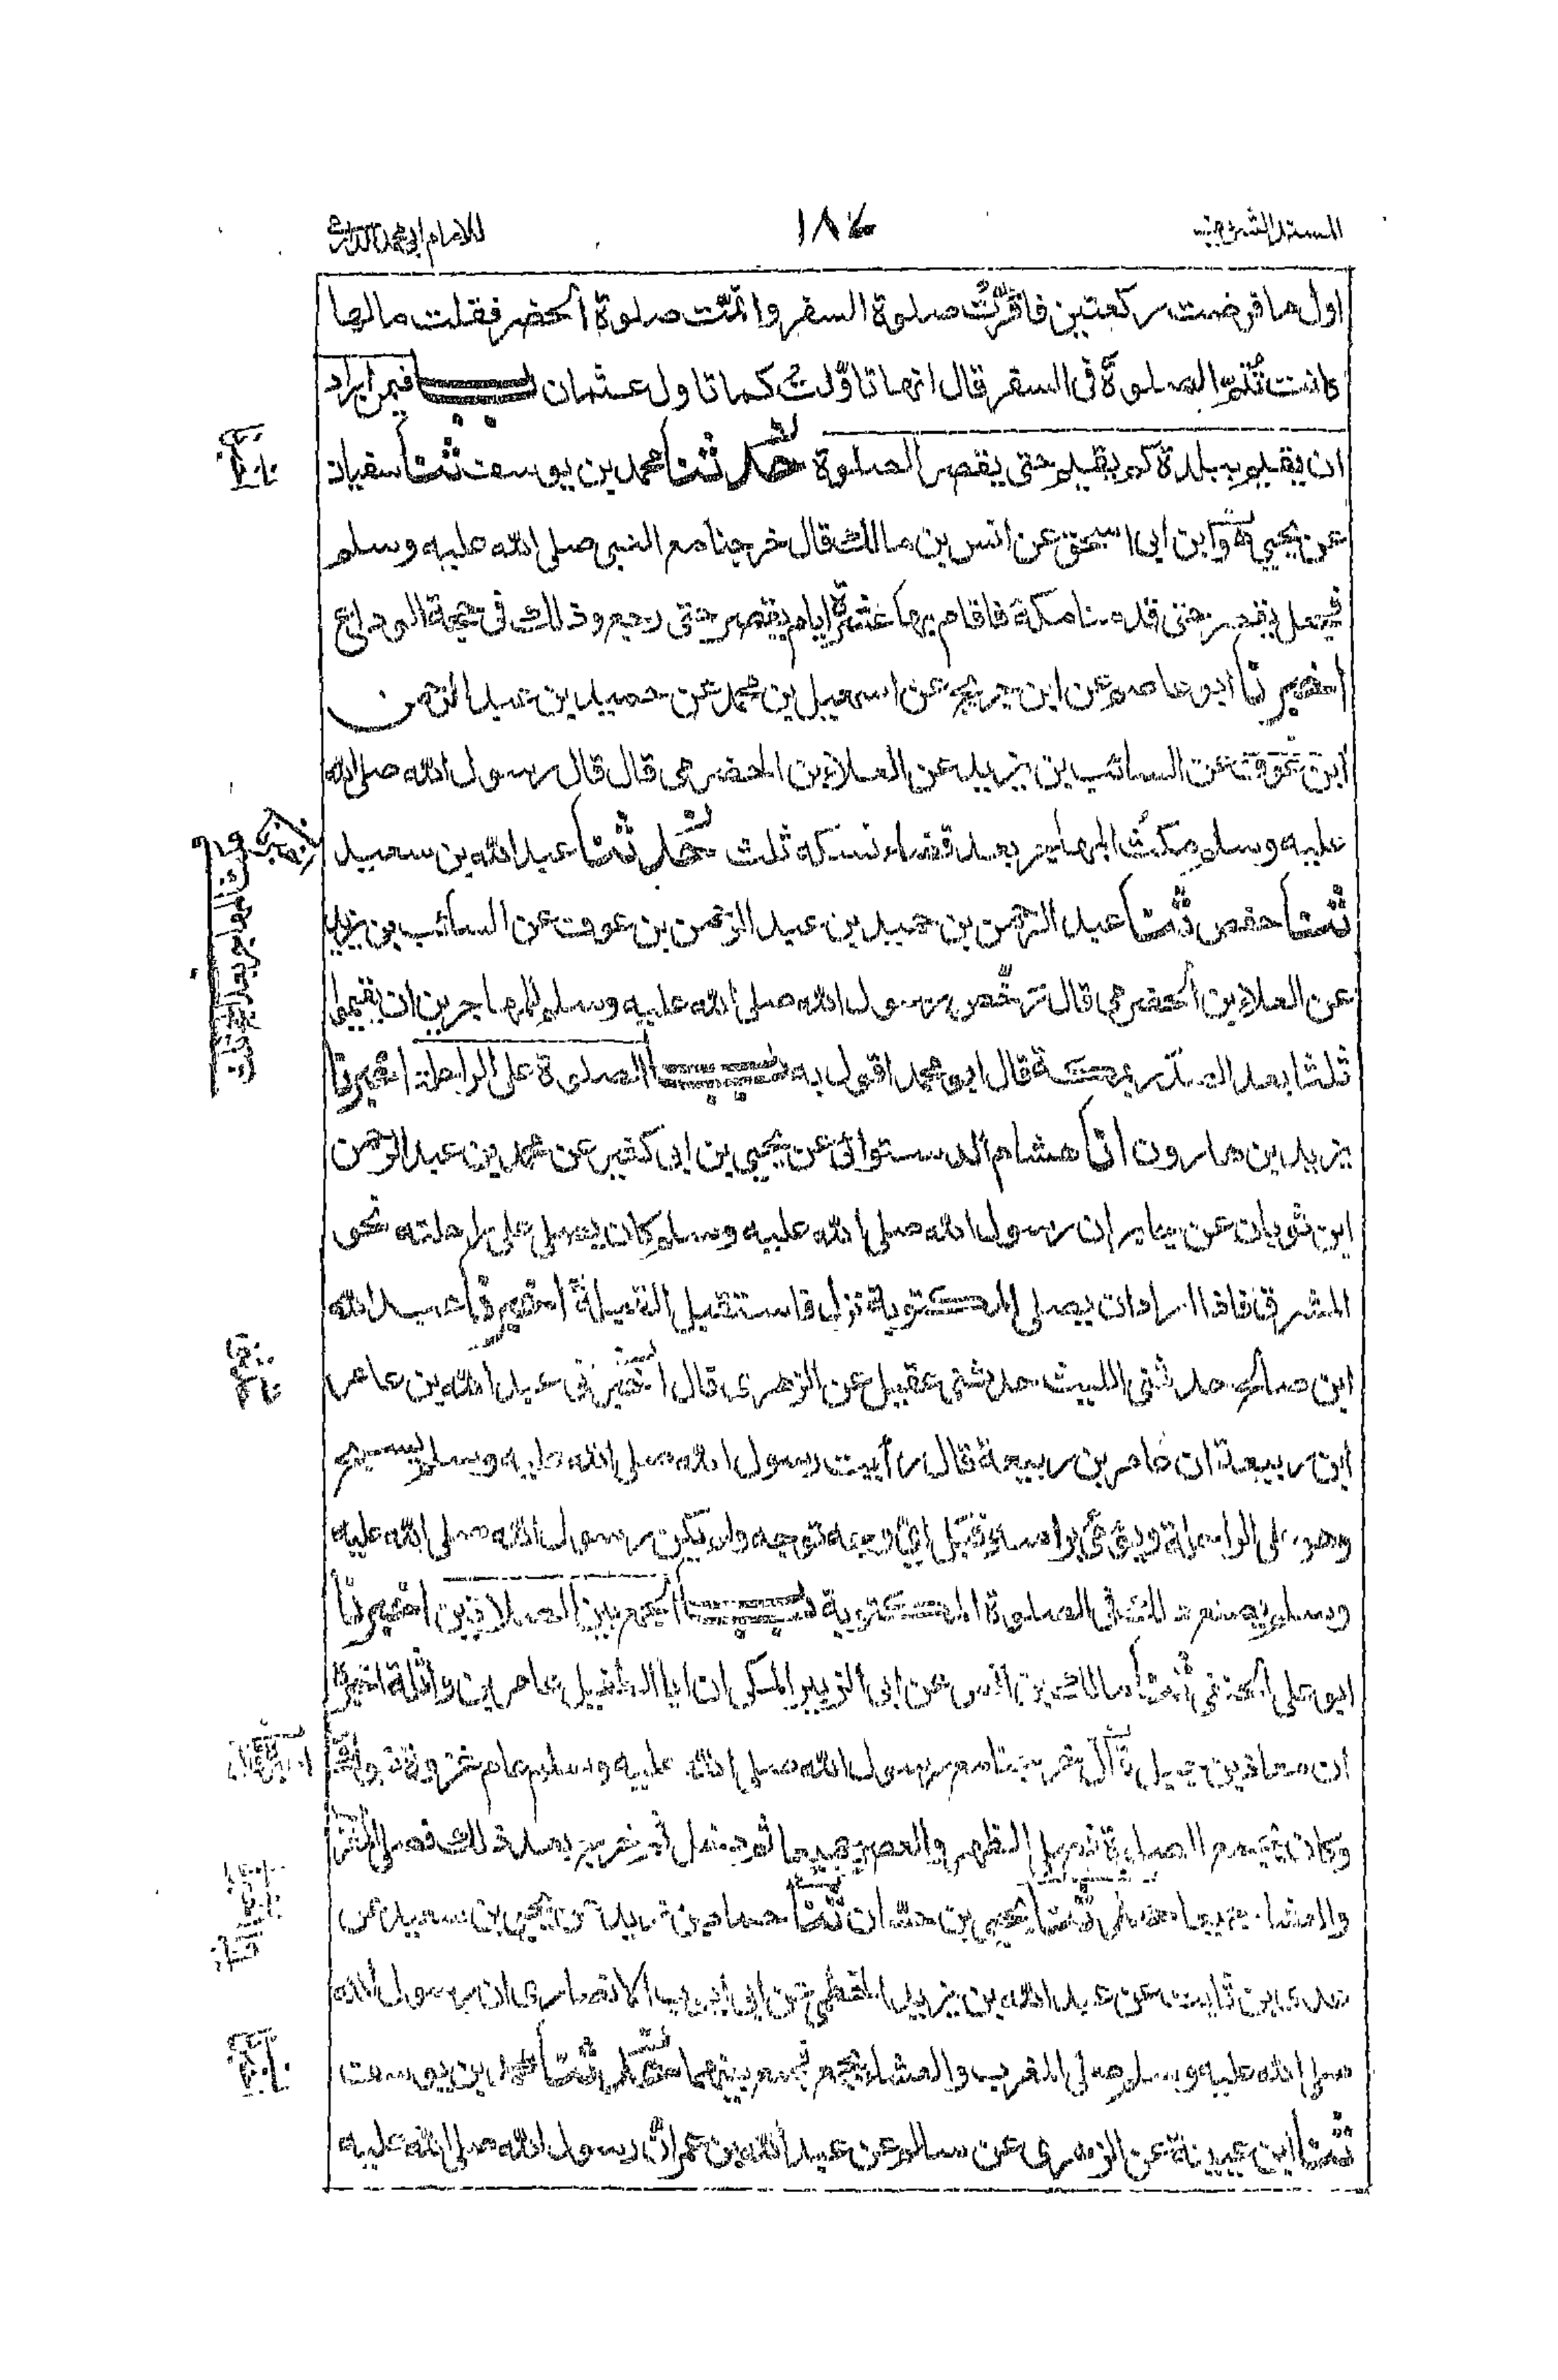 المسند الشريف ١٨٧ للامام ابي محمد الدارمي
اول ما فرضت ركعتين فاقرّت صلوة السفر واتمّت صلوة الحضر فقلت مالها
كانت تُتمّ الصلوة فى السفر قال انها تاوّلت كما تاول عثمان باب فيمن اراد
ان يقيم ببلدة كم يقيم حتى يقصر الصلوة حدثنا محمد بن يوسف ثنا سفيان
عن يحيى وابن ابى اسحق عن انس بن مالك قال خرجنا مع النبى صلى الله عليه وسلم
فجعل يقصر حتى قدمنا مكة فاقام بها عشرة ايام يقصر حتى رجع وذلك فى حجة الوداع
اخبرنا ابو عاصم عن ابن جريج عن اسمعيل بن محمد عن حميد بن عبد الرحمن
ابن عوف عن السائب بن يزيد عن العلاء بن الحضرمى قال قال رسول الله صلى الله
عليه وسلم مكث المهاجر بعد قضاء نسكه ثلث حدثنا عبد الله بن سعيد
ثنا حفص ثنا عبد الرحمن بن حميد بن عبد الرحمن بن عوف عن السائب بن يزيد
عن العلاء بن الحضرمى قال رخّص رسول الله صلى الله عليه وسلم للمهاجرين ان يقيموا
ثلثا بعد الصدر بمكة قال ابو محمد اقول به باب الصلوة على الراحلة اخبرنا
يزيد بن هارون انا هشام الدستوائى عن يحيى بن ابى كثير عن محمد بن عبد الرحمن
ابن ثوبان عن جابر ان رسول الله صلى الله عليه وسلم كان يصلى على راحلته نحو
المشرق فاذا اراد ان يصلى المكتوبة نزل فاستقبل القبلة اخبرنا عبد الله
ابن صالح حدثنى الليث حدثنى عقيل عن الزهرى قال اخبرنى عبد الله بن عامر
ابن ربيعة ان عامر بن ربيعة قال رأيت رسول الله صلى الله عليه وسلم يسبح
وهو على الراحلة ويؤمئ براسه قبل اى وجه توجه ولم يكن رسول الله صلى الله عليه
وسلم يصنع ذلك فى الصلوة المكتوبة باب الجمع بين الصلاتين اخبرنا
ابو على الحنفى ثنا مالك بن انس عن ابى الزبير المكى ان ابا الطفيل عامر بن واثلة اخبره
ان معاذ بن جبل قال خرجنا مع رسول الله صلى الله عليه وسلم عام غزوة تبوك
وكان يجمع الصلوة فصلى الظهر والعصر جميعا ثم دخل ثم خرج بعد ذلك فصلى المغرب
والعشاء جميعا حدثنا يحيى بن حسّان ثنا حماد بن زيد عن يحيى بن سعيد عن
عدى بن ثابت عن عبد الله بن يزيد الخطمى عن ابى ايوب الانصارى ان رسول الله
صلى الله عليه وسلم صلى المغرب والعشاء بجمع جمع بينهما حدثنا محمد بن يوسف
ثنا ابن عيينة عن الزهرى عن سالم عن عبد الله بن عمر ان رسول الله صلى الله عليه